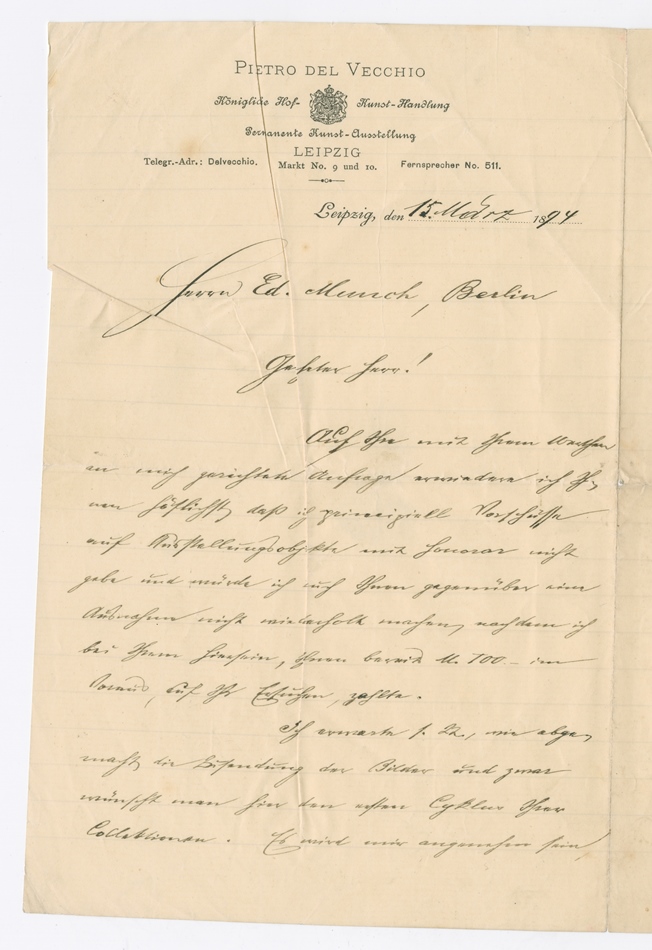 PIETRO DEL VECCHIO
Königliche Hof- Kunst-Handlung
Permanente Kunst-Ausstellung
LEIPZIG
Telegr.-Adr.: Delvecchio. Markt No. 9 und 10. Fernsprecher No. 511.
Leipzig, den 15. März 1894
Herrn Ed. Munch, Berlin
Geehrter Herr!
Auf Ihre mit Ihrem Werthen
an mich gerichtete Anfrage erwiedere ich Ih-
nen höflichst, daß ich principiell Vorschüsse
auf Ausstellungsobjekte mit Honorar nicht
gebe und würde ich auch Ihnen gegenüber eine
Ausnahme nicht wiederholt machen, nachdem ich
bei Ihrem Hiersein, Ihnen bereits M. 100.- im
Voraus, auf Ihr Ersuchen, zahlte.
Ich erwarte s. Zt., wie abge-
macht die Zusendung der Bilder und zwar
wünscht man hier den ersten Cyklus Ihrer
Collektionen. Es wird mir angenehm sein,